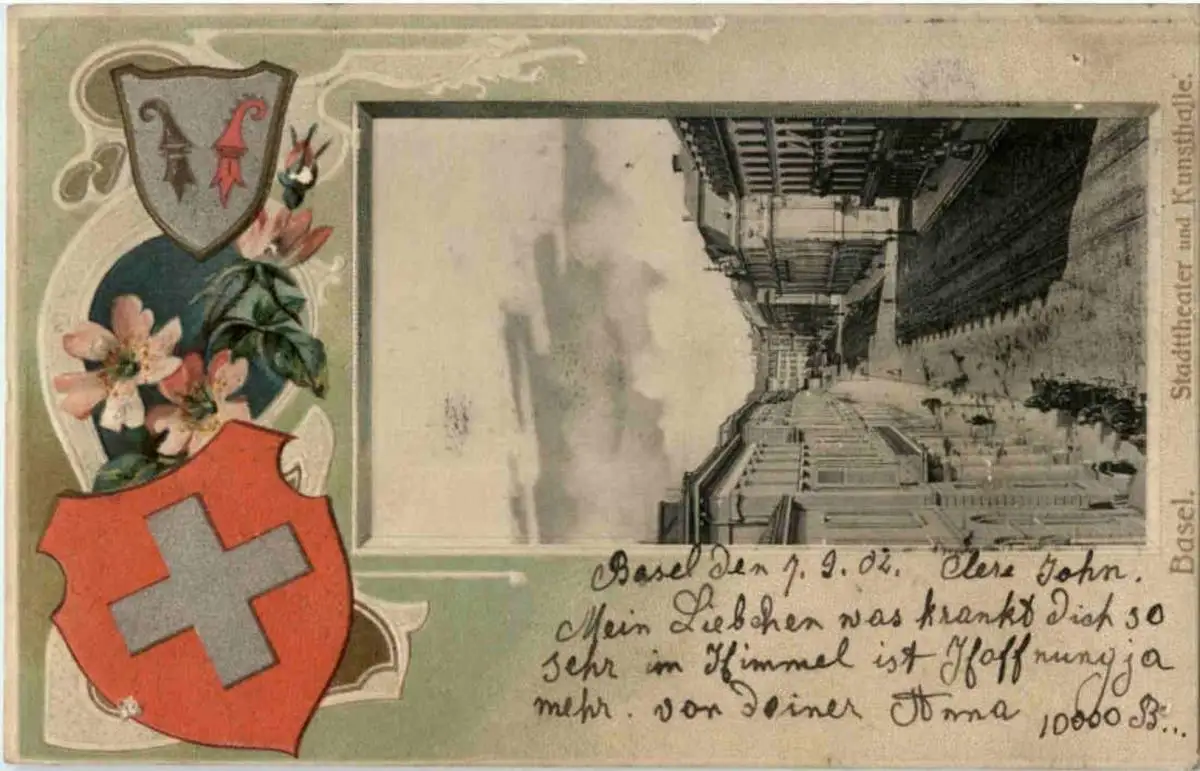 Basel. Stadttheater und Kunsthalle.
Basel den 7. 9. 02. Clere John.
Mein Liebchen was krankt dich so
sehr im Himmel ist Hoffnung ja
mehr. von deiner Anna 10000 B...